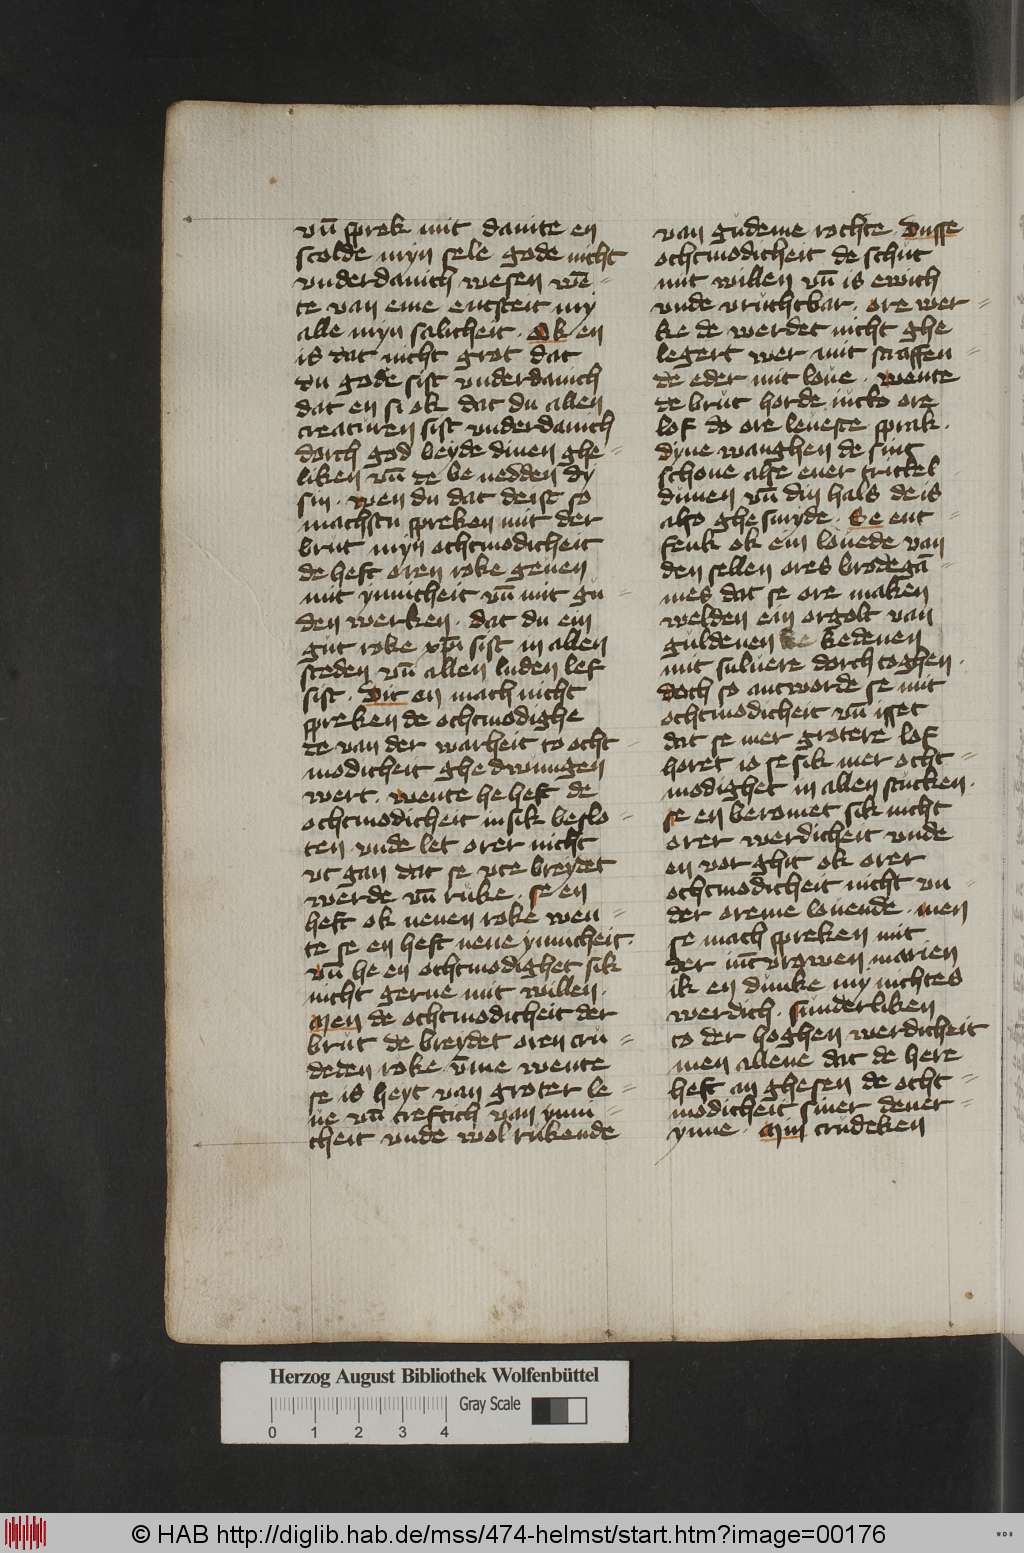 vn̄ sprek mit dauite en
scolde myn sele gode nicht
vnderdanich wesen wē=
te van eme entsteit my
alle myn salicheit · Ok en
is dat nicht grot dat
du gode sist vnderdanich
dat en si ok dat du allen
creaturen sist vnderdanich
dorch god beyde dinen ghe=
liken vn̄ de be nedden dy
sin · wen du dat deist so
machstu spreken mit der
brut myn othmodicheit
de heft oren roke geuen
mit ynnicheit vn̄ mit gu=
den werken · dat du ein
gut roke xp̄i sist in allen
steden vn̄ allen luden lef
sist · Dit en mach nicht
spreken de ochtmodighe
de van der warheit to ocht=
modicheit ghedwungen
wert · wente he heft de
ochtmodicheit in sik beslo=
ten vnde let orer nicht
vt gan dat se vte breydet
werde vn̄ ruke · se en
heft ok nenen roke wen=
te se en heft nene ynnicheit ·
vn̄ he en ochtmodighet sik
nicht gerne mit willen ·
Men de ochtmodicheit der
brut de breydet oren cru=
deden roke v̄me wente
se is heyt van groter le=
ue vn̄ creftich van ynni=
cheit vnde wol rukende
van gudeme rochte · Dusse
ochtmodicheit de schut
mit willen vn̄ is ewich
vnde vruchtbar · ore wer=
ke de werdet nicht ghe
legert wer mit straffen=
de eder mit loue · wente
de brut horde iucto ore
lof do ore leueste sprak ·
dyne wanghen de sint
schone alse ener turtel=
duuen vn̄ din hals de is
also ghesmyde · Se ent=
fenk ok ein louede van
den sellen ores brodegā=
mes dat se ore maken
welden ein orgolt van
guldenen kedenen
mit suluere dorch toghen ·
doch so antworde se mit
ochtmodicheit vn̄ isset
dat se mer grotere lof
horet io se sik mer ocht=
modighet in allen stucken ·
se en beromet sik nicht
orer werdicheit vnde
en vor ghit ok orer
ochtmodicheit nicht vn=
der oreme louende · men
se mach spreken mit
der iūc vrowen marien
ik en dunke my nichtes
werdich · sunderliken
to der hoghen werdicheit
men allene dat de here
heft an ghesen de ocht=
modicheit siner dener=
ynne · Min crudeken
Herzog August Bibliothek Wolfenbüttel
Gray Scale
0 1 2 3 4
© HAB http://diglib.hab.de/mss/474-helmst/start.htm?image=00176